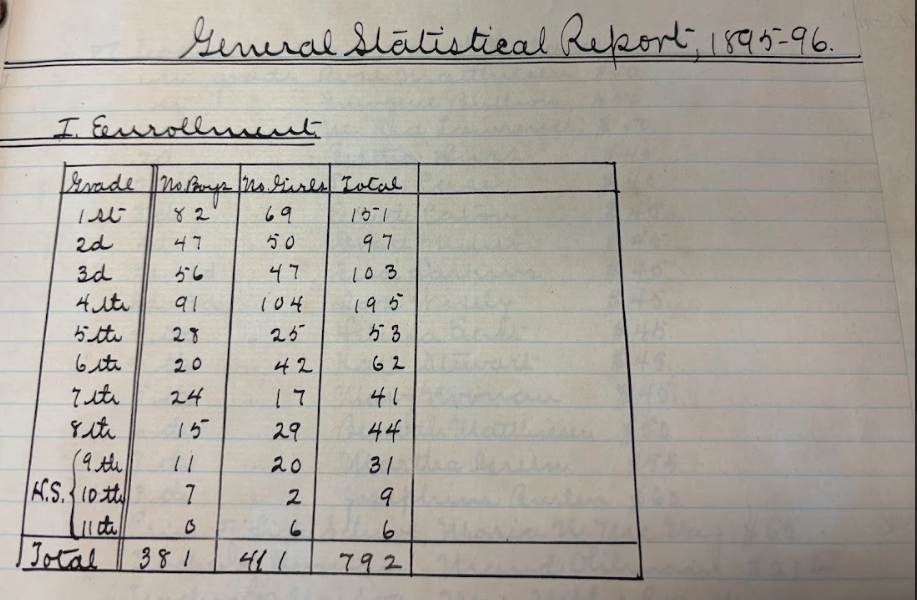 General Statistical Report, 1895-96.
I. Enrollment
Grade No. Boys No. Girls Total
1st 82 69 151
2d 47 50 97
3d 56 47 103
4th 91 104 195
5th 28 25 53
6th 20 42 62
7th 24 17 41
8th 15 29 44
9th 11 20 31
H.S. 10th 7 2 9
11th 0 6 6
Total 381 411 792